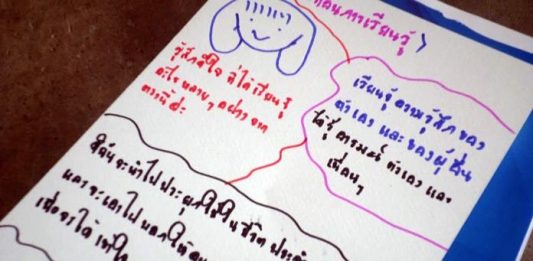 ก่อนการเรียนรู้
รู้สึกดีใจ ที่ได้เรียนรู้
อะไร หลายๆ อย่าง จาก
คาบนี้ค่ะ
เรียนรู้ความรู้สึก ของ
ตัวเอง และ ของผู้อื่น
ได้รู้ อารมณ์ ตัวเอง และ
เพื่อนๆ
ฉันจะนำไป ประยุกใช้ใน ชีวิต ประจำ
และ จะเอาไป บอกให้
เพื่อจะได้ เข้าใจ